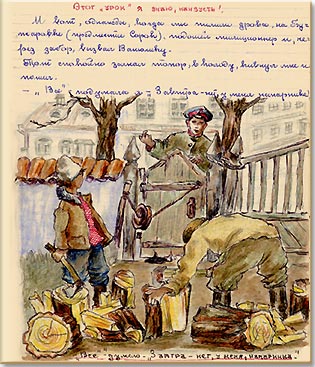 Этот "урок" я знаю, наизусть!
И вот, однажды, когда мы пилили дрова, на Бу-
таравке (предместье Серова), подошел милиционер и, че-
рез забор, вызвал Ванюшку.
Тот спокойно заткал топор, в колоду, кивнул мне и
пошел.
— "Все" (подумала я – Завтра – нет, у меня, напарника)
"Все" думаю – "Завтра – нет, у меня, напарника."